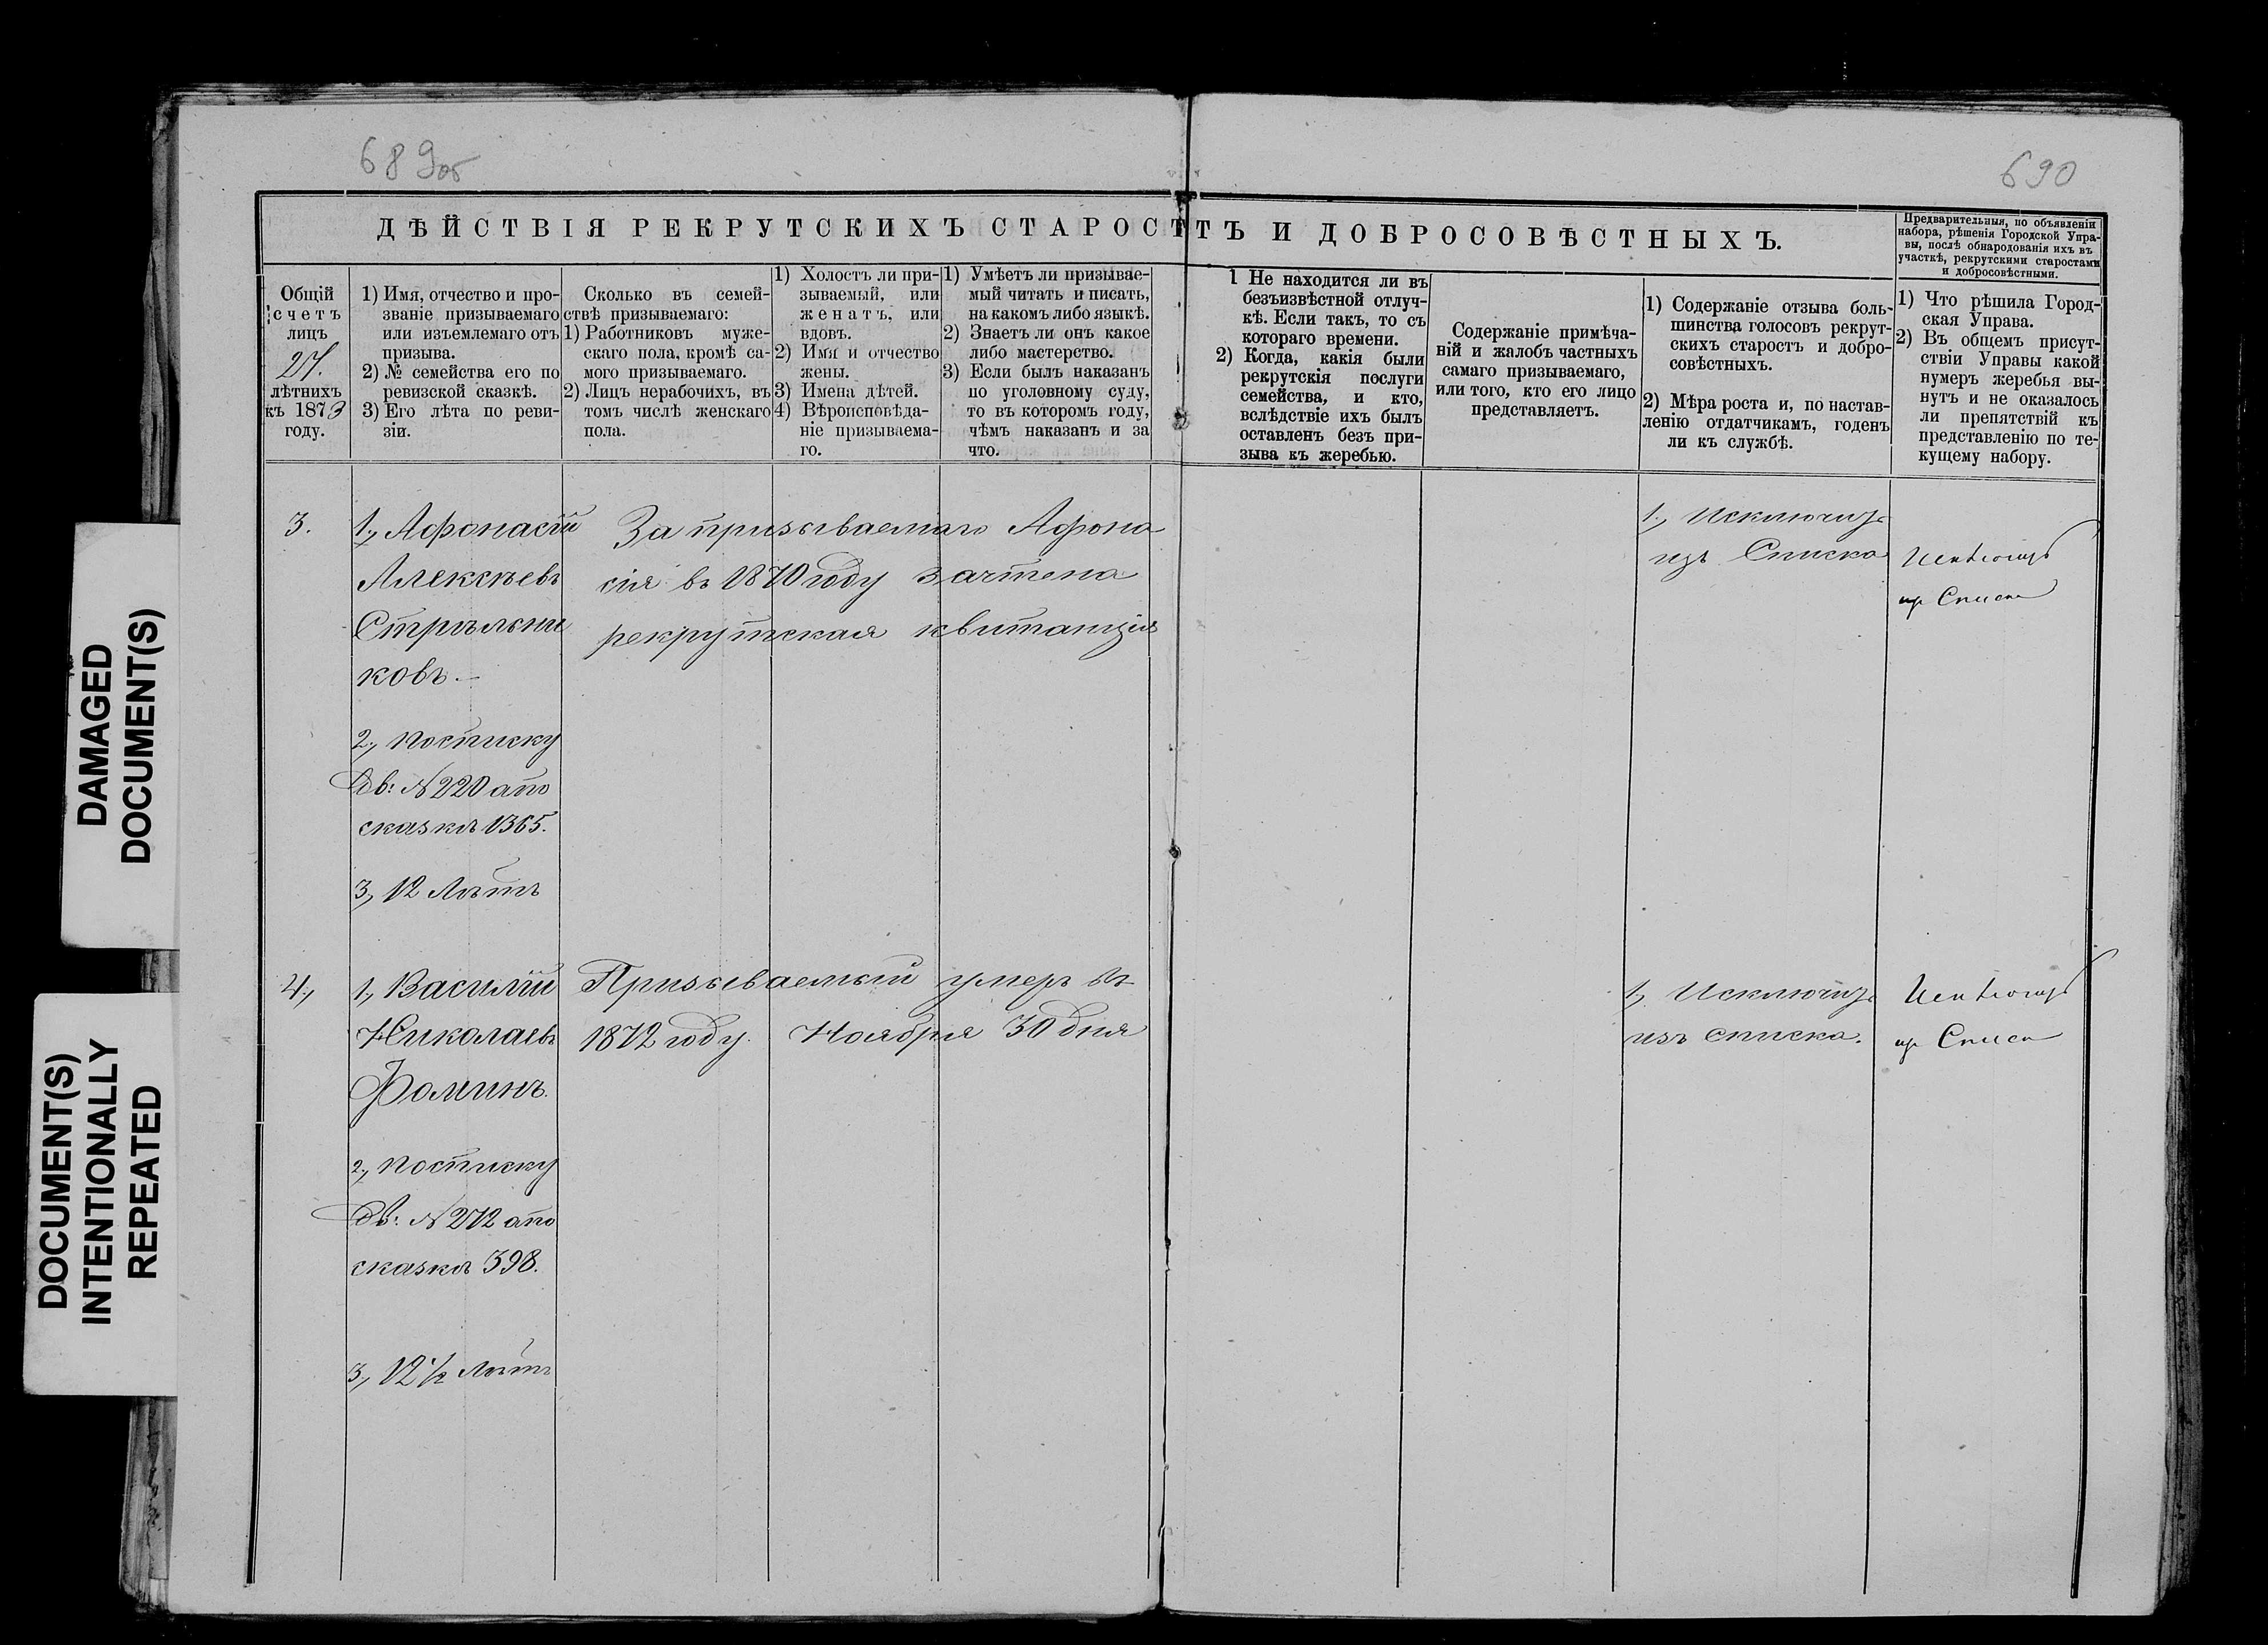 689об
690
ДѢЙСТВІЯ РЕКРУТСКИХЪ СТАРОСТЪ И ДОБРОСОВѢСТНЫХЪ.
Предварительныя, по объявленіи
набора, рѣшенія Городской Упра-
вы, послѣ обнародованія ихъ въ
участкѣ, рекрутскими старостами
и добросовѣстными.
Общій
счетъ
лицъ
27.
лѣтнихъ
къ 1873
году.
1) Имя, отчество и про-
званіе призываемаго
или изъемлемаго отъ
призыва.
2) № семейства его по
ревизской сказкѣ.
3) Его лѣта по реви-
зіи.
Сколько въ семей-
ствѣ призываемаго:
1) Работниковъ муже-
скаго пола, кромѣ са-
мого призываемаго.
2) Лицъ нерабочихъ, въ
томъ числѣ женскаго
пола.
1) Холостъ ли при-
зываемый, или
женатъ, или
вдовъ.
2) Имя и отчество
жены.
3) Имена дѣтей.
4) Вѣроисповѣда-
ніе призываема-
го.
1) Умѣетъ ли призывае-
мый читать и писать,
на какомъ либо языкѣ.
2) Знаетъ ли онъ какое
либо мастерство.
3) Если былъ наказанъ
по уголовному суду,
то въ которомъ году,
чѣмъ наказанъ и за
что.
1 Не находится ли въ
безъизвѣстной отлуч-
кѣ. Если такъ, то съ
котораго времени.
2) Когда, какія были
рекрутскія послуги
семейства, и кто,
вслѣдствіе ихъ былъ
оставленъ безъ при-
зыва къ жеребью.
Содержаніе примѣча-
ній и жалобъ частныхъ
самаго призываемаго,
или того, кто его лицо
представляетъ.
1) Содержаніе отзыва боль-
шинства голосовъ рекрут-
скихъ старостъ и добро-
совѣстныхъ.
2) Мѣра роста и, по настав-
ленію отдатчикамъ, годенъ
ли къ службѣ.
1) Что рѣшила Город-
ская Управа.
2) Въ общемъ присут-
ствіи Управы какой
нумеръ жеребья вы-
нутъ и не оказалось
ли препятствій къ
представленію по те-
кущему набору.
3.
1., Афонасій
Алексѣевъ
Стрѣльни
ковъ.—
2., по списку
Дв: № 220 а по
сказкѣ 1365.
3., 12 Лѣтъ
За призываемаго Афона
сія въ 1870 году зачтена
рекрутская квитанція
1., Исключить
изъ Списка
Исключить
изъ Списка
4.,
1., Василій
Николаевъ
Фоминъ.
2., по списку
Дв: № 272 а по
сказкѣ 398.
3., 12 1/2 Лѣтъ
Призываемый умеръ въ
1872 году. Ноября 30 дня
1., Исключить
изъ списка.
Исключить
изъ Списка
DAMAGED
DOCUMENT(S)
DOCUMENT(S)
INTENTIONALLY
REPEATED